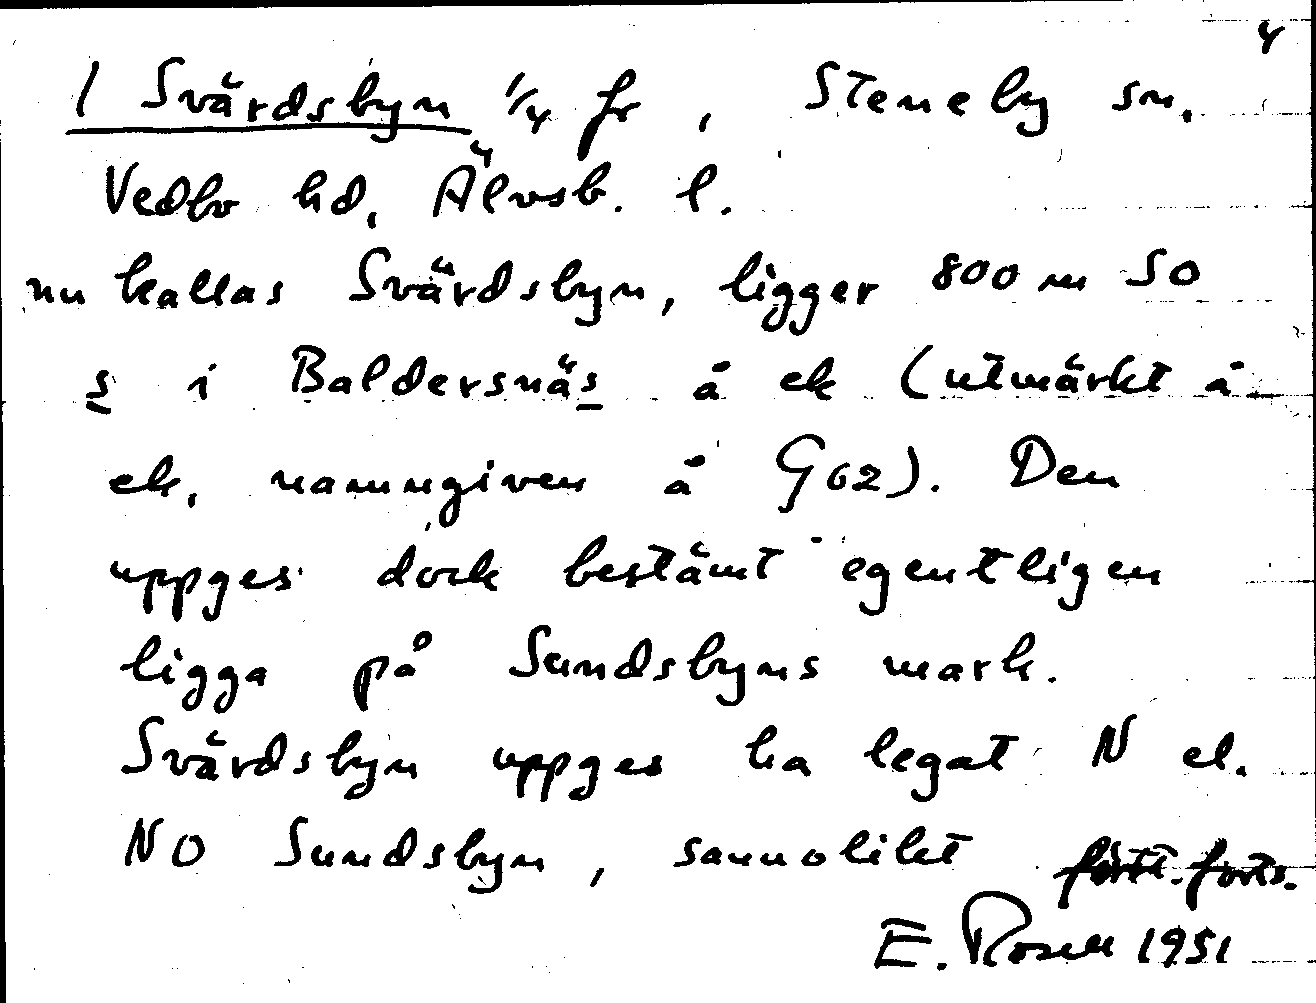 4
1 Svärdsbyn 1/4 fr, Steneby sn.
Vedbo hd, Älvsb. l.
nu kallas Svärdsbyn, ligger 800 m SO
s i Baldersnäs å ek (utmärkt å
ek, namngiven å G62). Den
uppges dock bestämt egentligen
ligga på Sundsbyns mark.
Svärdsbyn uppges ha legat N el.
NO Sundsbyn, sannolikt forts.
E. Rosell 1951